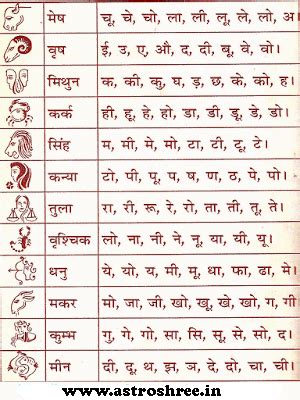 मेष चू, चे, चो, ला, ली, लू, ले, लो, अ।
वृष ई, उ, ए, औ, द, दी, बू, वे, वो।
मिथुन क, की, कु, घ, ड़, छ, के, को, ह।
कर्क ही, हू, हे, हो, डा, डी, डू, डे, डो।
सिंह म, मी, मे, मो, टा, टी, दू, टे।
कन्या टो, पी, पू, प, ष, ण, ठ, पे, पो।
तुला रा, री, रू, रे, रो, ता, ती, तू, ते।
वृश्चिक लो, ना, नी, ने, नू, या, यी, यू।
धनु ये, यो, य, मी, मू, धा, फा, ढा, मे।
मकर मो, जा, जी, खो, खू, खे, खो, ग, गी
कुम्भ गु, गे, गो, सा, सि, सू, से, सो, द।
मीन दी, दू, थ, झ, ञ, दे, दो, चा, ची।
www.astroshree.in